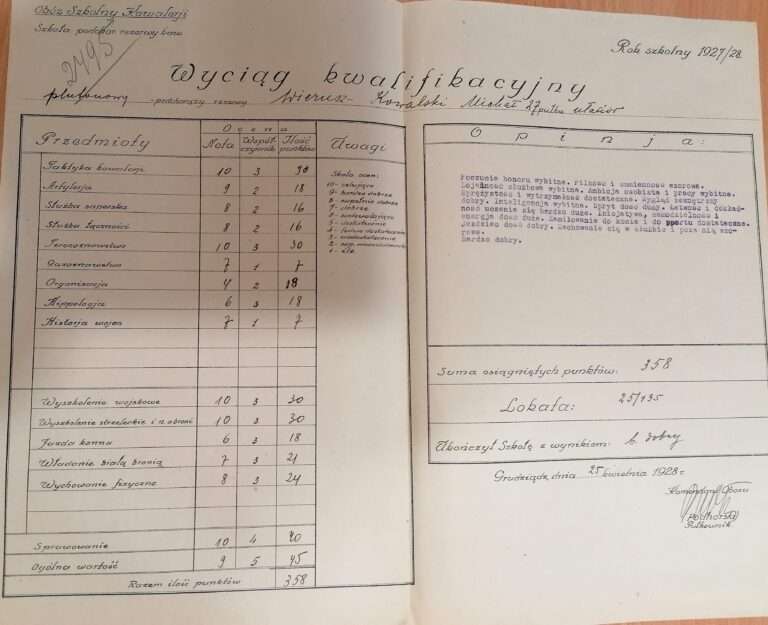 Obóz Szkolny Kawalerji
Szkoła podchor. rezerwy kaw.
2495
Rok szkolny 1927/28.
Wyciąg kwalifikacyjny
plutonowy -podchorąży rezerwy Wierusz-Kowalski Michał 27 pułku ułanów
Przedmioty Ocena Uwagi
Nota Współczynnik Ilość punktów
Taktyka kawalerji 10 3 30
Artylerja 9 2 18
Służba saperska 8 2 16
Służba łączności 8 2 16
Terenoznawstwo 10 3 30
Gazoznawstwo 7 1 7
Organizacja 4 2 18
Hippologja 6 3 18
Historja wojen 7 1 7
Wyszkolenie wojskowe 10 3 30
Wyszkolenie strzeleckie i n. obroni 10 3 30
Jazda konna 6 3 18
Władanie białą bronią 7 3 21
Wychowanie fizyczne 8 3 24
Sprawowanie 10 4 40
Ogólna wartość 9 5 45
Razem ilość punktów 358
Skala ocen:
10- celująco
9- bardzo dobrze
8- zupełnie dobrze
7- dobrze
5- dostatecznie
1- źle
Opinja:
Poczucie honoru wybitne. Pilność i sumienność wzorowa.
Lojalność służbowa wybitna. Ambicja osobista i pracy wybitna.
Sprężystość i wytrzymałość dostateczna. Wygląd zewnętrzny
dobry. Inteligencja wybitna. Spryt dość duży. Łatwość i dokład-
ność uczenia się bardzo duże. Inicjatywa, samodzielność i
energja dość duże. Zamiłowanie do konia i do sportu dostateczne.
Jeździec dość dobry. Zachowanie się w służbie i poza nią wzo-
rowe.
Bardzo dobry.
Suma osiągniętych punktów: 358
Lokata: 25/135
Ukończył Szkołę z wynikiem: b. dobry
Grudziądz, dnia 25 kwietnia 1928 r.
Komendant Obozu
(Podhorski)
Pułkownik